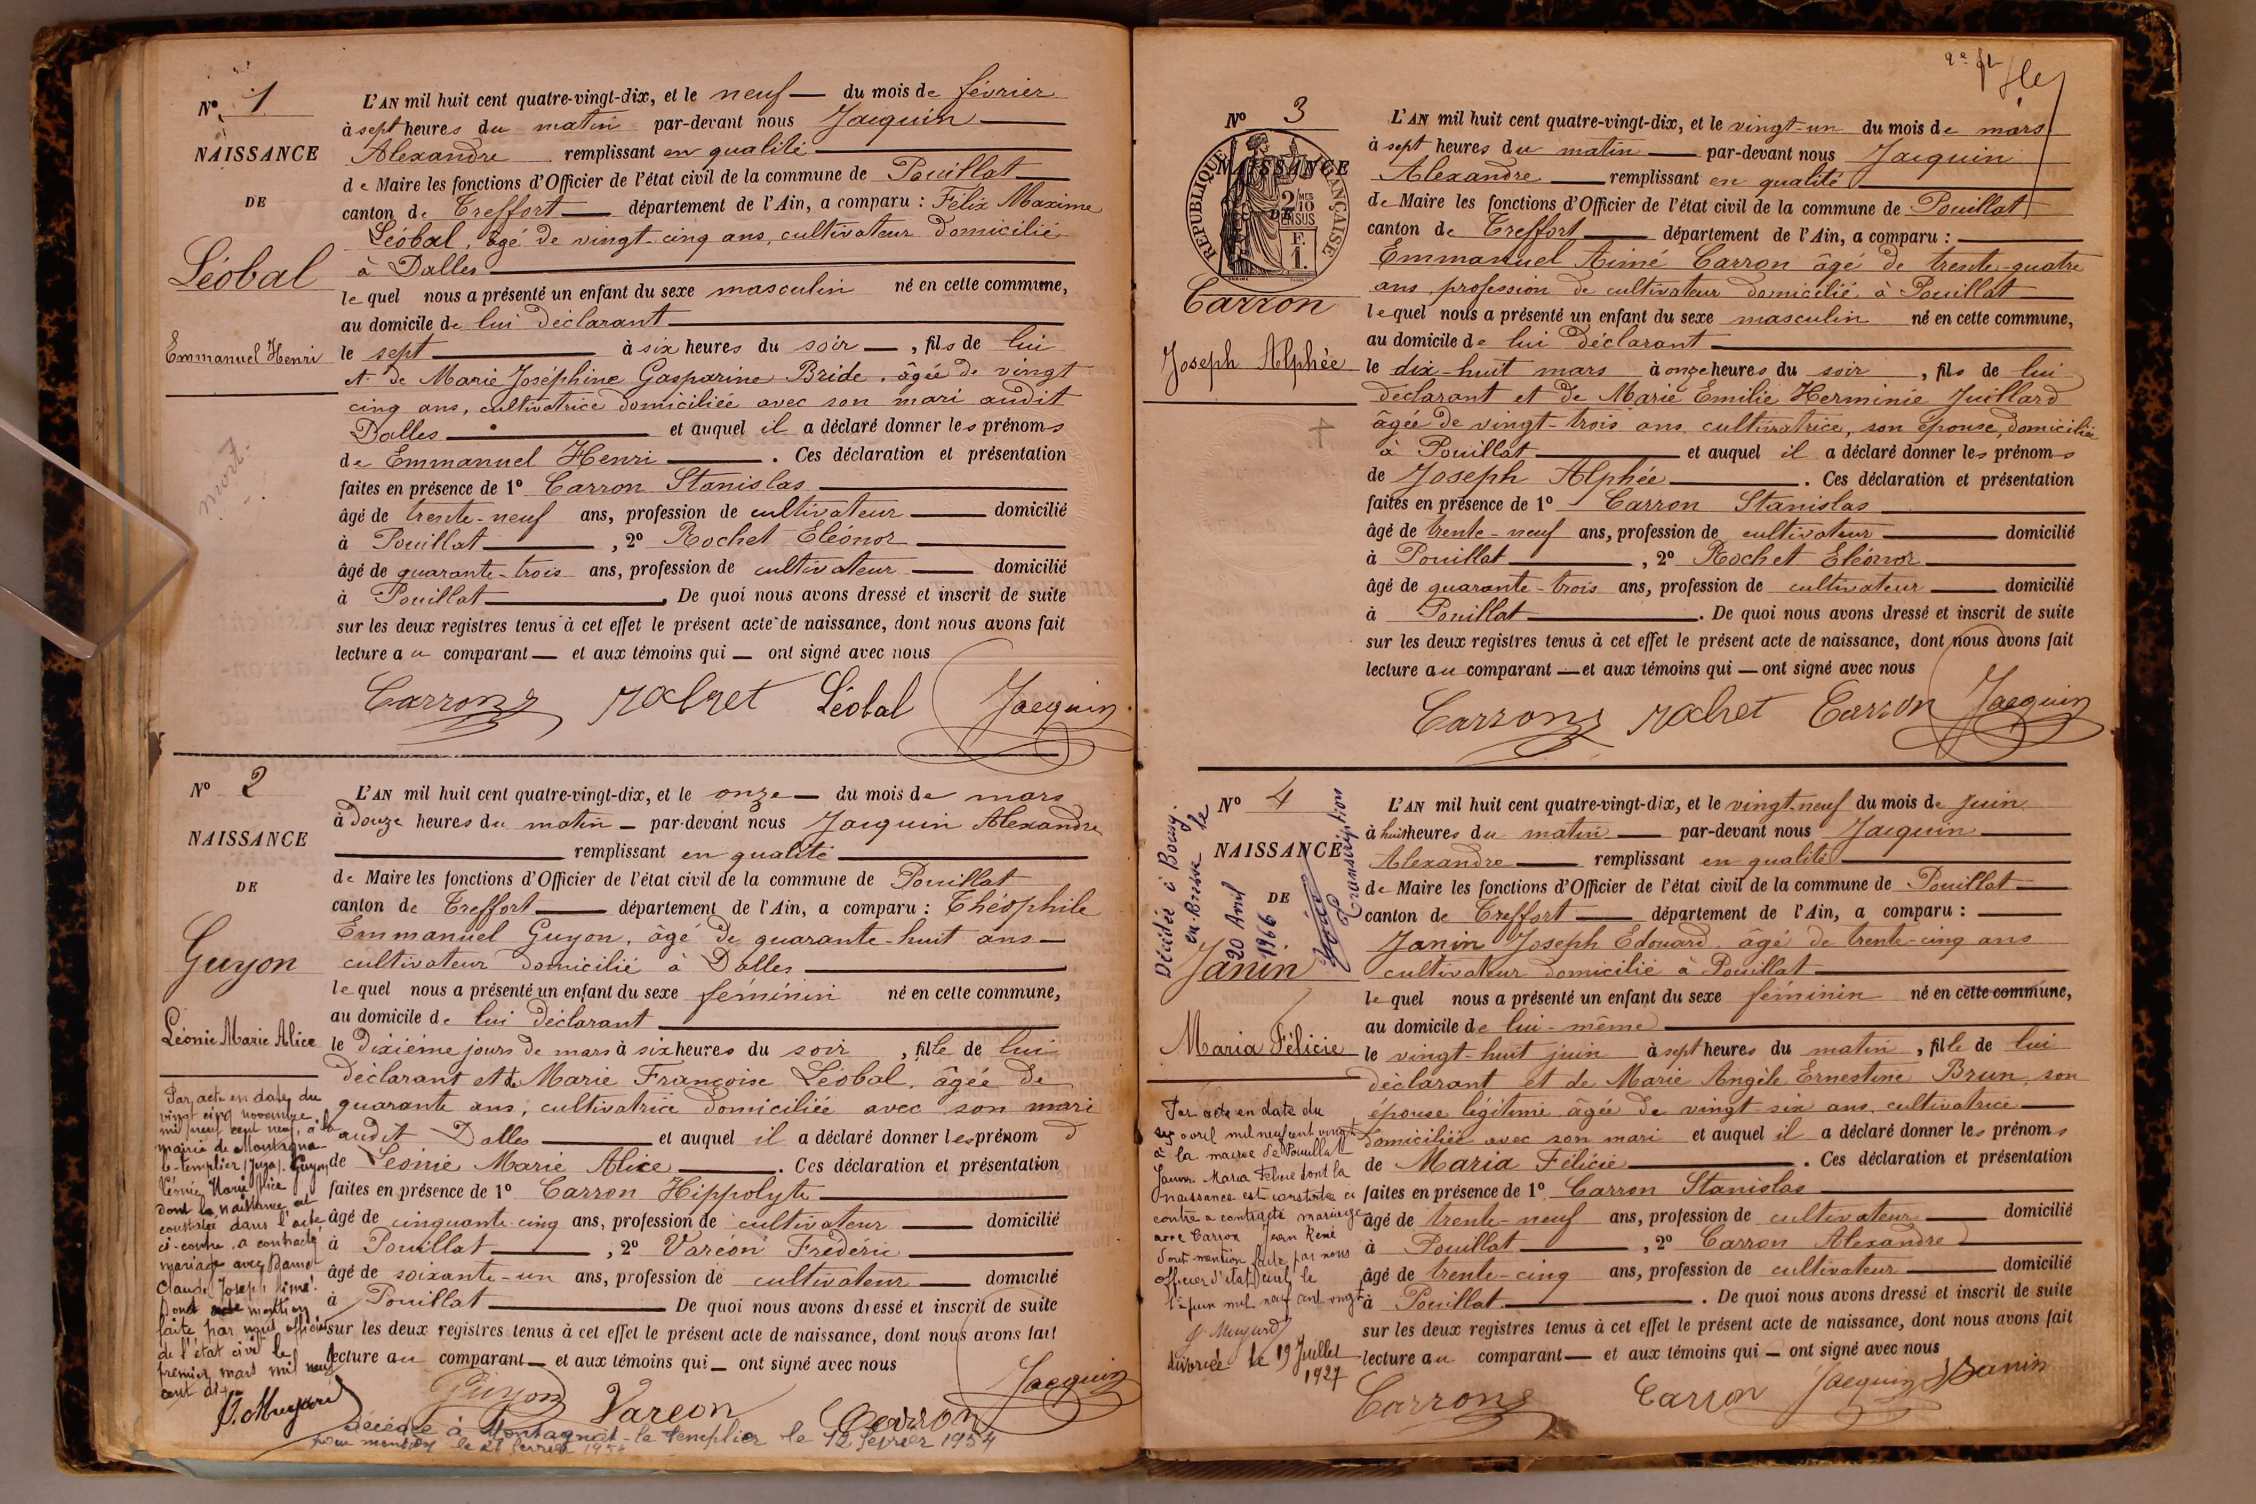 Nº 1
NAISSANCE
DE
Léobal
Emmanuel Henri
mort
L'AN mil huit cent quatre-vingt-dix, et le neuf — du mois de février
à sept heures du matin par-devant nous Jacquin —
Alexandre remplissant en qualité —
de Maire les fonctions d'Officier de l'état civil de la commune de Pouillat —
canton de Treffort — département de l'Ain, a comparu : Félix Maxime
Léobal, âgé de vingt-cinq ans, cultivateur domicilié
à Dalles —
lequel nous a présenté un enfant du sexe masculin né en cette commune,
au domicile de lui déclarant —
le sept — à six heures du soir —, fils de lui
et de Marie Joséphine Gasparine Bride, âgée de vingt
cinq ans, cultivatrice domiciliée avec son mari audit
Dalles — et auquel il a déclaré donner les prénoms
de Emmanuel Henri — . Ces déclaration et présentation
faites en présence de 1º Carron Stanislas —
âgé de trente-neuf ans, profession de cultivateur — domicilié
à Pouillat —, 2º Rochet Eléonor —
âgé de quarante-trois ans, profession de cultivateur — domicilié
à Pouillat —. De quoi nous avons dressé et inscrit de suite
sur les deux registres tenus à cet effet le présent acte de naissance, dont nous avons fait
lecture au comparant — et aux témoins qui — ont signé avec nous
Carron Rochet Léobal Jacquin
Nº 2
NAISSANCE
DE
Guyon
Léonie Marie Alice
Par acte en date du
vingt cinq novembre
mil neuf cent neuf, à la
mairie de Montagna-
le-templier (Jura). Guyon
Léonie Marie Alice
dont la naissance est
constatée dans l'acte
ci-contre, a contracté
mariage avec Damet
Claude Joseph Aimé.
Dont mention
faite par nous officier
de l'état civil le
premier mars mil neuf
cent dix
L'AN mil huit cent quatre-vingt-dix, et le onze — du mois de mars
à douze heures du matin — par-devant nous Jacquin Alexandre
— remplissant en qualité —
de Maire les fonctions d'Officier de l'état civil de la commune de Pouillat
canton de Treffort — département de l'Ain, a comparu : Théophile
Emmanuel Guyon, âgé de quarante-huit ans —
cultivateur domicilié à Dalles —
lequel nous a présenté un enfant du sexe féminin né en cette commune,
au domicile de lui déclarant —
le dixième jours de mars à six heures du soir, fille de lui
déclarant et de Marie Françoise Léobal, âgée de
quarante ans, cultivatrice domiciliée avec son mari
audit Dalles — et auquel il a déclaré donner les prénom s
de Léonie Marie Alice — . Ces déclaration et présentation
faites en présence de 1º Carron Hippolyte —
âgé de cinquante-cinq ans, profession de cultivateur — domicilié
à Pouillat —, 2º Varéon Frédéric —
âgé de soixante-un ans, profession de cultivateur — domicilié
à Pouillat — De quoi nous avons dressé et inscrit de suite
sur les deux registres tenus à cet effet le présent acte de naissance, dont nous avons fait
lecture au comparant — et aux témoins qui — ont signé avec nous
Guyon Vareon Carron Jacquin
Décédée à Montagna-le-templier le 12 février 1954
pour mention le 21 février 1954
Nº 3
NAISSANCE
DE
REPUBLIQUE FRANÇAISE
2/10 EN SUS
F. 1.
Carron
Joseph Alphée
L'AN mil huit cent quatre-vingt-dix, et le vingt-un du mois de mars
à sept heures du matin — par-devant nous Jacquin
Alexandre — remplissant en qualité —
de Maire les fonctions d'Officier de l'état civil de la commune de Pouillat
canton de Treffort — département de l'Ain, a comparu : —
Emmanuel Aimé Carron âgé de trente-quatre
ans profession de cultivateur domicilié à Pouillat —
lequel nous a présenté un enfant du sexe masculin né en cette commune,
au domicile de lui déclarant —
le dix-huit mars à onze heures du soir, fils de lui
déclarant et de Marie Emilie Herminie Juillard
âgée de vingt-trois ans cultivatrice, son épouse, domiciliée
à Pouillat — et auquel il a déclaré donner les prénoms
de Joseph Alphée — . Ces déclaration et présentation
faites en présence de 1º Carron Stanislas —
âgé de trente-neuf ans, profession de cultivateur — domicilié
à Pouillat —, 2º Rochet Eléonor —
âgé de quarante-trois ans, profession de cultivateur — domicilié
à Pouillat — . De quoi nous avons dressé et inscrit de suite
sur les deux registres tenus à cet effet le présent acte de naissance, dont nous avons fait
lecture au comparant — et aux témoins qui — ont signé avec nous
Carron Rochet Carron Jacquin
Nº 4
NAISSANCE
DE
Janin
Maria Félicie
Décédée à Bourg-
en-Bresse le
20 Avril
1966
Transcription
Par acte en date du
six avril mil neuf cent vingt
à la mairie de Pouillat
Janin Maria Félicie dont la
naissance est constatée ci
contre a contracté mariage
avec Carron Jean René
dont mention faite par nous
officier d'état civil le
juin mil neuf cent vingt
divorcée le 19 Juillet
1927
L'AN mil huit cent quatre-vingt-dix, et le vingt-neuf du mois de juin
à huit heures du matin — par-devant nous Jacquin —
Alexandre — remplissant en qualité —
de Maire les fonctions d'Officier de l'état civil de la commune de Pouillat —
canton de Treffort — département de l'Ain, a comparu : —
Janin Joseph Edouard âgé de trente-cinq ans
cultivateur domicilié à Pouillat —
lequel nous a présenté un enfant du sexe féminin né en cette commune,
au domicile de lui-même —
le vingt-huit juin à sept heures du matin, fille de lui
déclarant et de Marie Angèle Ernestine Brun, son
épouse légitime âgée de vingt-six ans, cultivatrice —
domiciliée avec son mari et auquel il a déclaré donner les prénoms
de Maria Félicie — . Ces déclaration et présentation
faites en présence de 1º Carron Stanislas —
âgé de trente-neuf ans, profession de cultivateur — domicilié
à Pouillat —, 2º Carron Alexandre
âgé de trente-cinq ans, profession de cultivateur — domicilié
à Pouillat — . De quoi nous avons dressé et inscrit de suite
sur les deux registres tenus à cet effet le présent acte de naissance, dont nous avons fait
lecture au comparant — et aux témoins qui — ont signé avec nous
Carron Carron Jacquin Janin